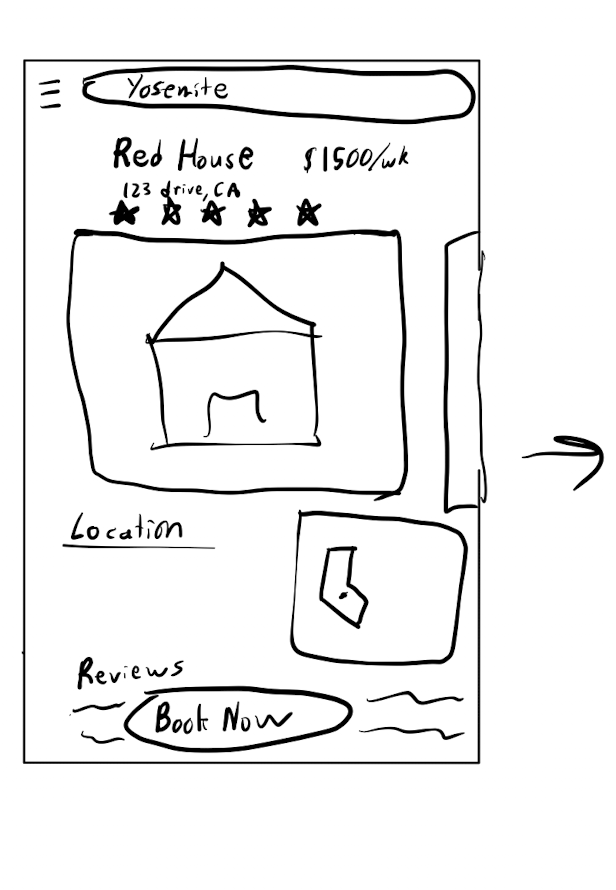 Yosemite
Red House $1500/wk
123 drive, CA
Location
Reviews
Book Now